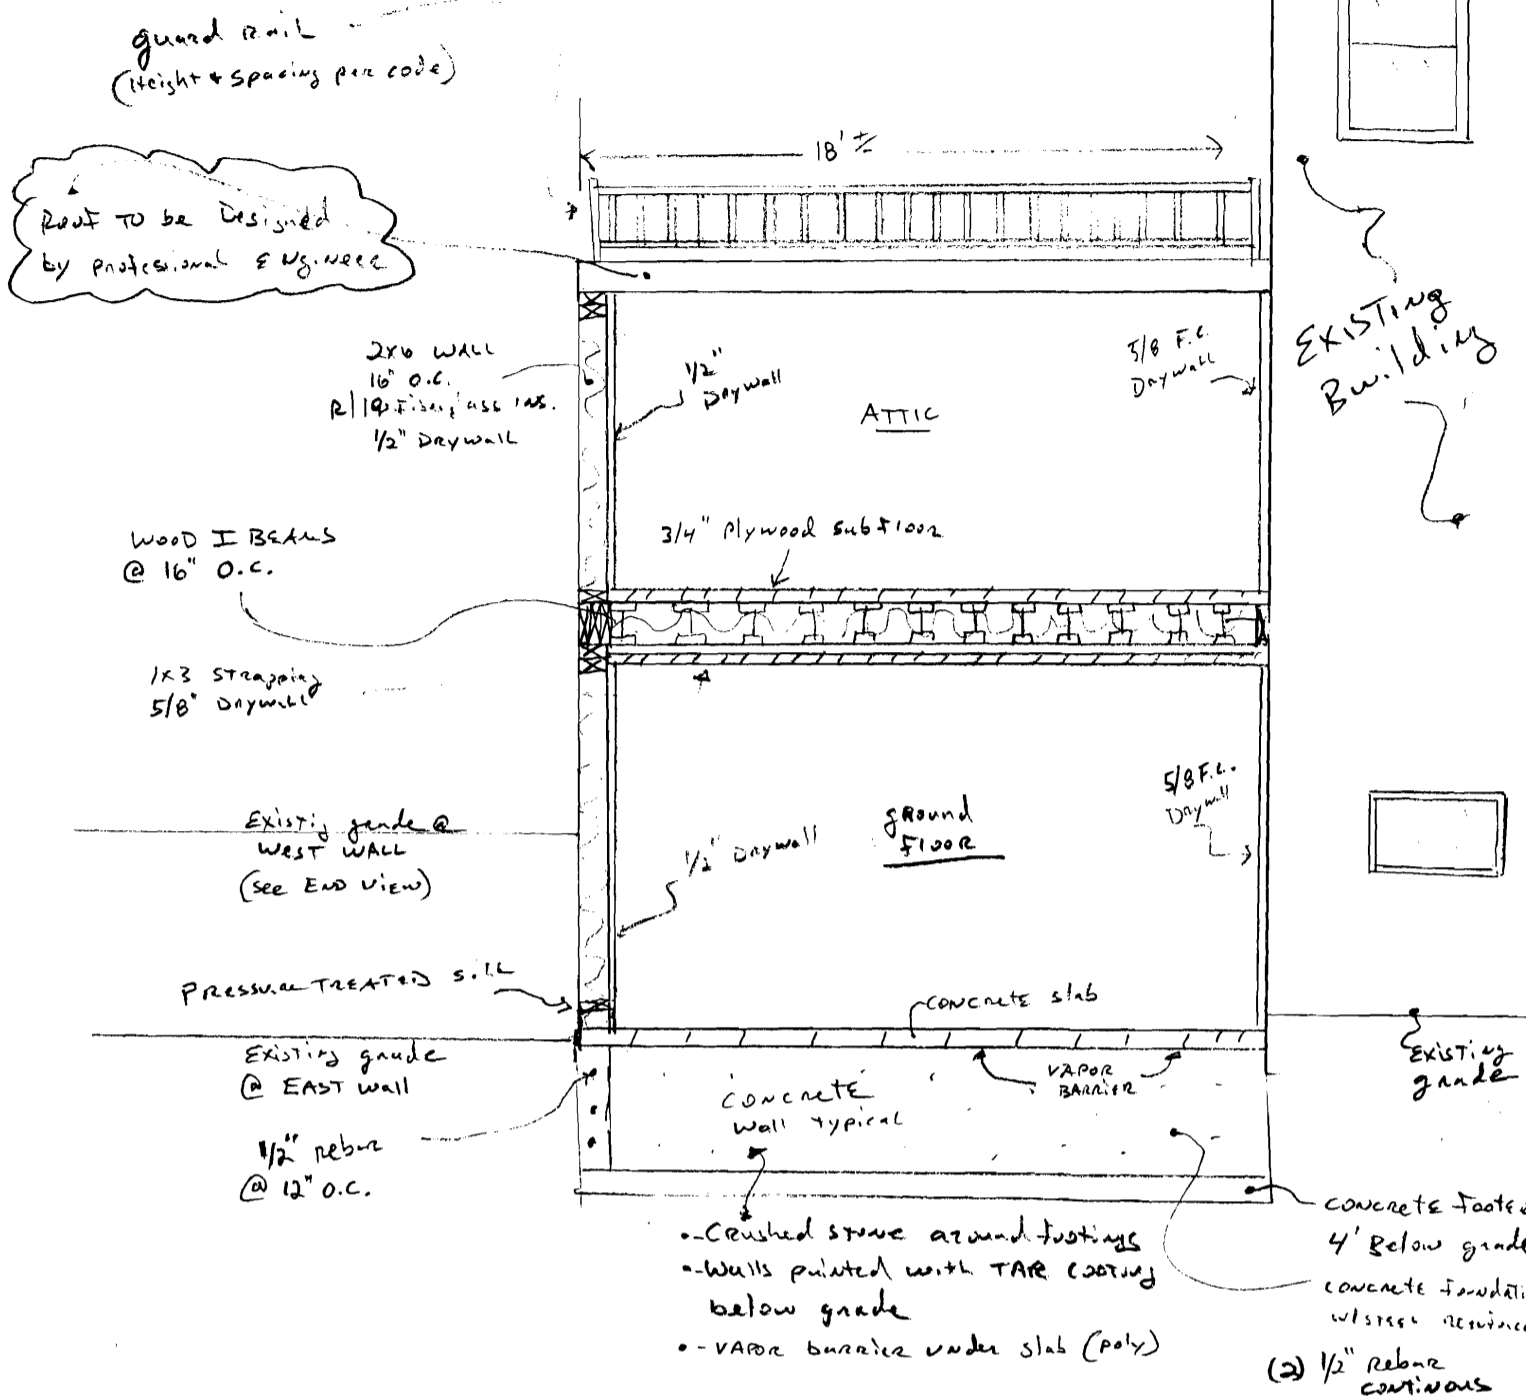 guard rail
(Height & spacing per code)
18' ±
Roof TO be Designed
by professional ENgineer
2x6 WALL
16" O.C.
R/19 Fiberglass ins.
1/2" Drywall
1/2"
Drywall
5/8 F.C.
Drywall
ATTIC
EXISTING
Building
WOOD I BEAMS
@ 16" O.C.
3/4" Plywood subfloor
1x3 strapping
5/8" Drywall
Existig grade @
WEST WALL
(see END VIEW)
1/2" Drywall
ground
FLOOR
5/8 F.C.
Drywall
PRESSURE TREATED SILL
CONCRETE slab
Existing grade
@ EAST wall
VAPOR
BARRIER
EXISTING
grade
CONCRETE
Wall typical
1/2" rebar
@ 12" O.C.
•-Crushed stone around footings
•-Walls painted with TAR COATING
below grade
•-VAPOR barrier under slab (poly)
CONCRETE Foote
4' Below grade
CONCRETE foundati
w/steel
(2) 1/2" Rebar
CONTINOUS